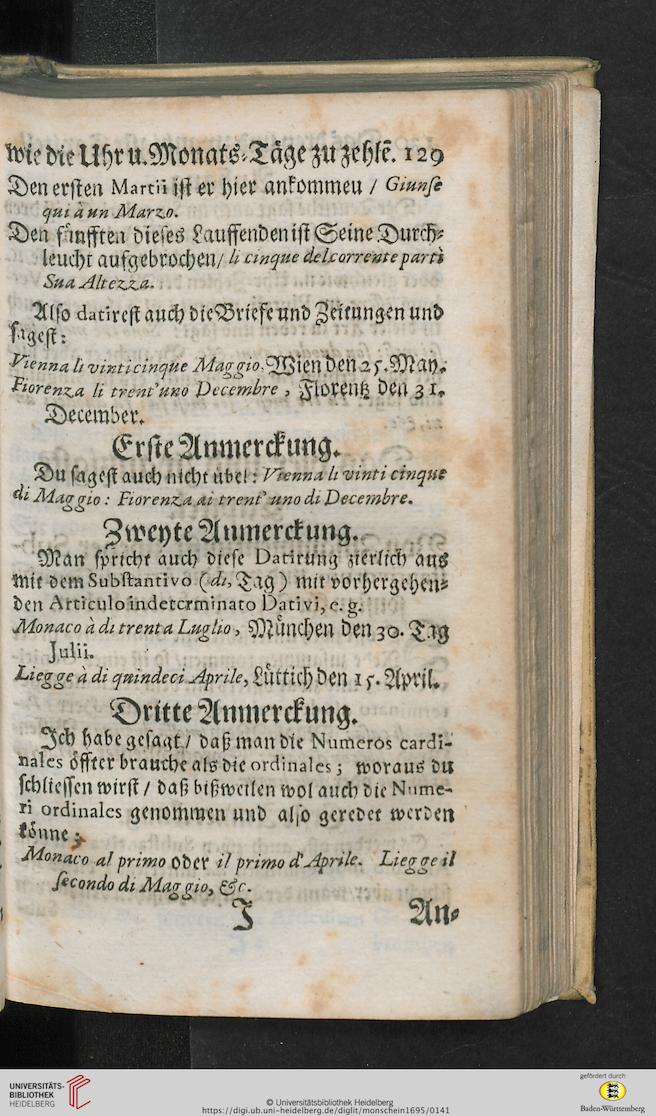 wie die Uhr u. Monats-Täge zu zehlẽ. 129
Den ersten Martii ist er hier ankommeu / Giunse
qui à un Marzo.
Den fünfften dieses Lauffenden ist Seine Durch-
leucht aufgebrochen / li cinque del corrente partì
Sua Altezza.
Also datirest auch die Briefe und Zeitungen und
sagest:
Vienna li vinticinque Maggio. Wien den 25. May.
Fiorenza li trent'uno Decembre, Florentz den 31.
December.
Erste Anmerckung.
Du sagest auch nicht übel: Vienna li vinti cinque
di Maggio: Fiorenza ai trent' uno di Decembre.
Zweyte Anmerckung.
Man spricht auch diese Datirung zierlich aus
mit dem Substantivo (di, Tag) mit vorhergehen-
den Articulo indeterminato Dativi, e. g.
Monaco à di trenta Luglio, München den 30. Tag
Julii.
Liegge à di quindeci Aprile, Lüttich den 15. April.
Dritte Anmerckung.
Ich habe gesagt / daß man die Numeros cardi-
nales öffter brauche als die ordinales; woraus du
schliessen wirst / daß bißweilen wol auch die Nume-
ri ordinales genommen und also geredet werden
könne:
Monaco al primo oder il primo d'Aprile. Liegge il
secondo di Maggio, &c.
J An-
UNIVERSITÄTS-
BIBLIOTHEK
HEIDELBERG
© Universitätsbibliothek Heidelberg
https://digi.ub.uni-heidelberg.de/diglit/monschein1695/0141
gefördert durch
Baden-Württemberg